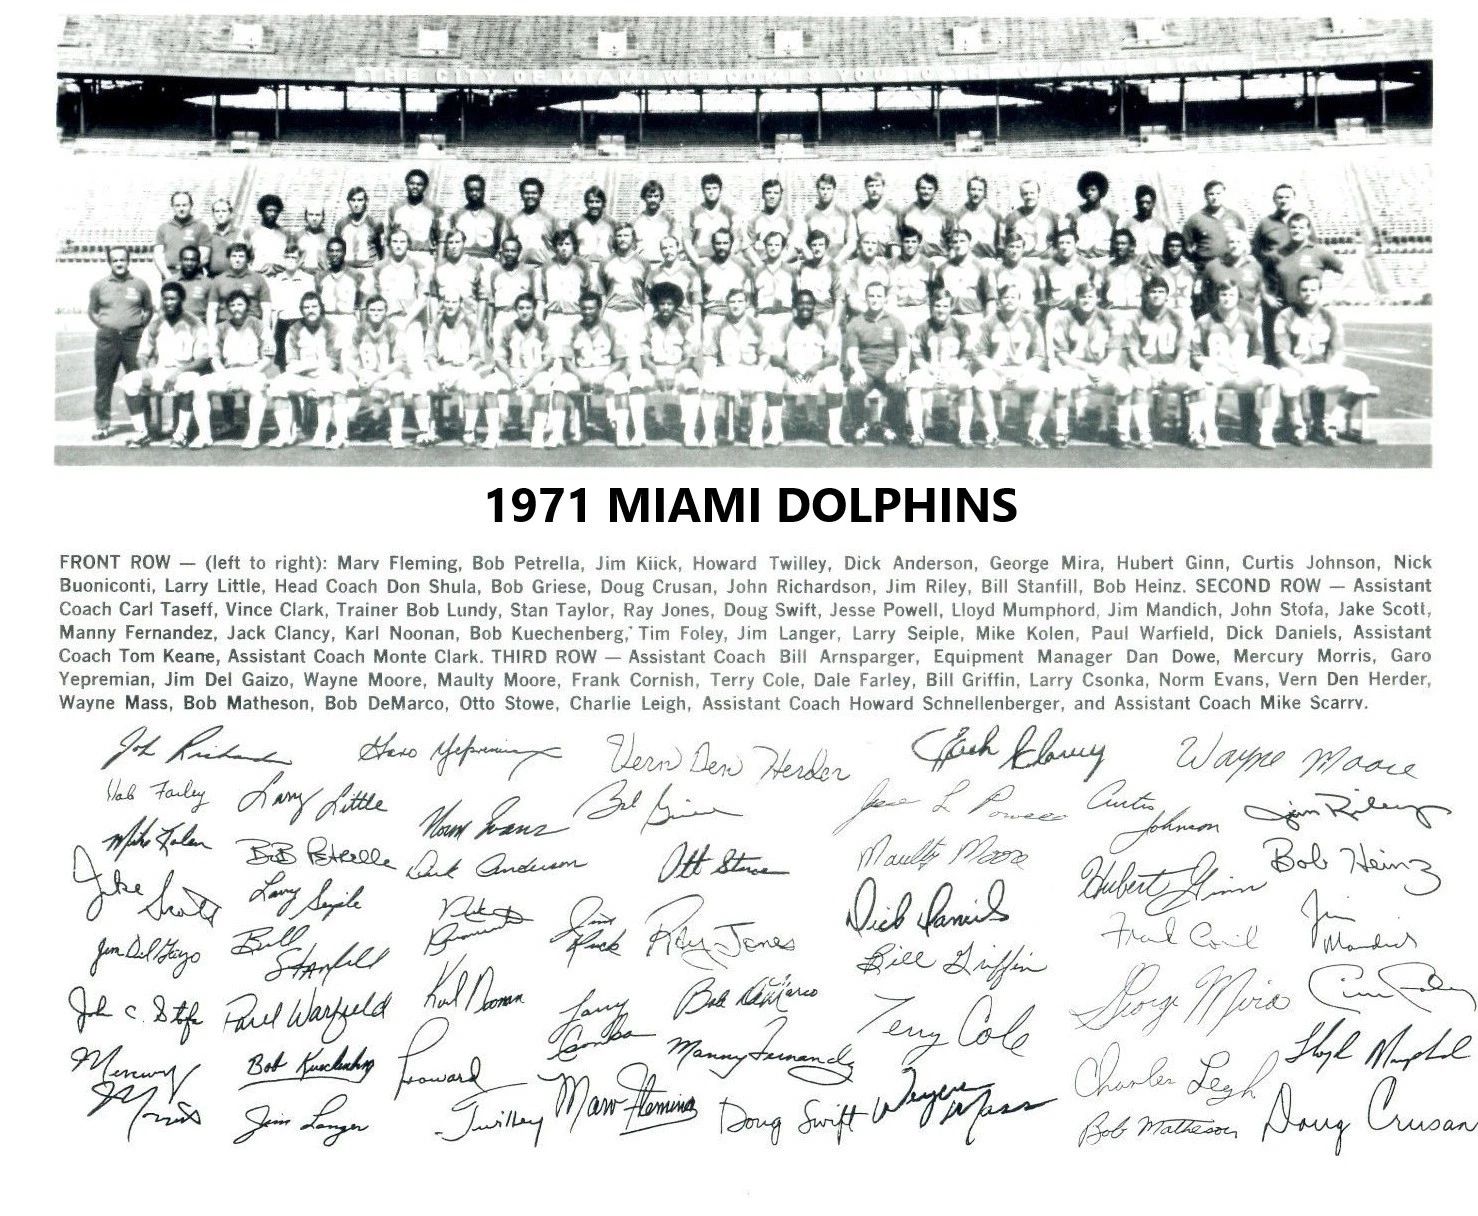 THE CITY OF MIAMI WELCOMES YOU TO
1971 MIAMI DOLPHINS
FRONT ROW — (left to right): Marv Fleming, Bob Petrella, Jim Kiick, Howard Twilley, Dick Anderson, George Mira, Hubert Ginn, Curtis Johnson, Nick
Buoniconti, Larry Little, Head Coach Don Shula, Bob Griese, Doug Crusan, John Richardson, Jim Riley, Bill Stanfill, Bob Heinz. SECOND ROW — Assistant
Coach Carl Taseff, Vince Clark, Trainer Bob Lundy, Stan Taylor, Ray Jones, Doug Swift, Jesse Powell, Lloyd Mumphord, Jim Mandich, John Stofa, Jake Scott,
Manny Fernandez, Jack Clancy, Karl Noonan, Bob Kuechenberg, Tim Foley, Jim Langer, Larry Seiple, Mike Kolen, Paul Warfield, Dick Daniels, Assistant
Coach Tom Keane, Assistant Coach Monte Clark. THIRD ROW — Assistant Coach Bill Arnsparger, Equipment Manager Dan Dowe, Mercury Morris, Garo
Yepremian, Jim Del Gaizo, Wayne Moore, Maulty Moore, Frank Cornish, Terry Cole, Dale Farley, Bill Griffin, Larry Csonka, Norm Evans, Vern Den Herder,
Wayne Mass, Bob Matheson, Bob DeMarco, Otto Stowe, Charlie Leigh, Assistant Coach Howard Schnellenberger, and Assistant Coach Mike Scarry.
John Richardson Garo Yepremian Vern Den Herder Jack Clancy Wayne Moore
Farley Larry Little Norm Evans Bob Griese Jesse L Powell Curtis Johnson Jim Riley
Mike Kolen Bob Petrella Dick Anderson Otto Stowe Maulty Moore Hubert Ginn Bob Heinz
Jake Scott Larry Seiple Nick Buoniconti Jim Kiick Ray Jones Dick Daniels Jim Mandich
Jim Del Gaizo Bill Stanfill Bill Griffin
John C. Stofa Paul Warfield Karl Noonan Larry Csonka Bob DeMarco Terry Cole George Mira Tim Foley
Mercury Morris Bob Kuechenberg Howard Twilley Manny Fernandez Charles Leigh Lloyd Mumphord
Jim Langer Marv Fleming Doug Swift Wayne Mass Bob Matheson Doug Crusan